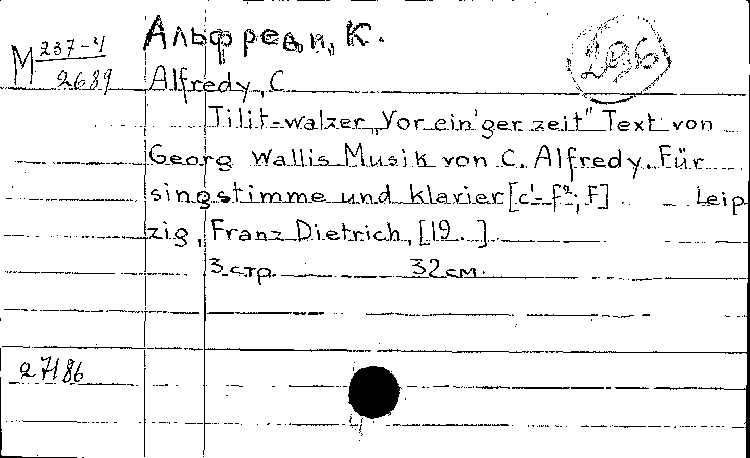 Альфреди, К.
М 237-4
2689
296
Alfredy, C
Tilit-walzer „Vor ein'ger zeit" Text von
Georg Wallis Musik von C. Alfredy. Für
singstimme und klavier [c'-f²; F] - Leip
zig, Franz Dietrich, [19. .]
3 стр. 32 см.
27186
4